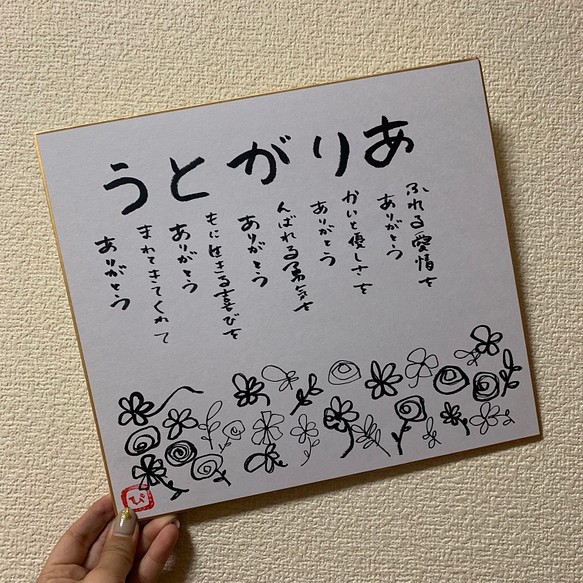 ありがとう
ふれる愛情を
ありがとう
かいと優しさを
ありがとう
んばれる勇気を
ありがとう
もに生きる喜びを
ありがとう
まれてきてくれて
ありがとう
ぴ